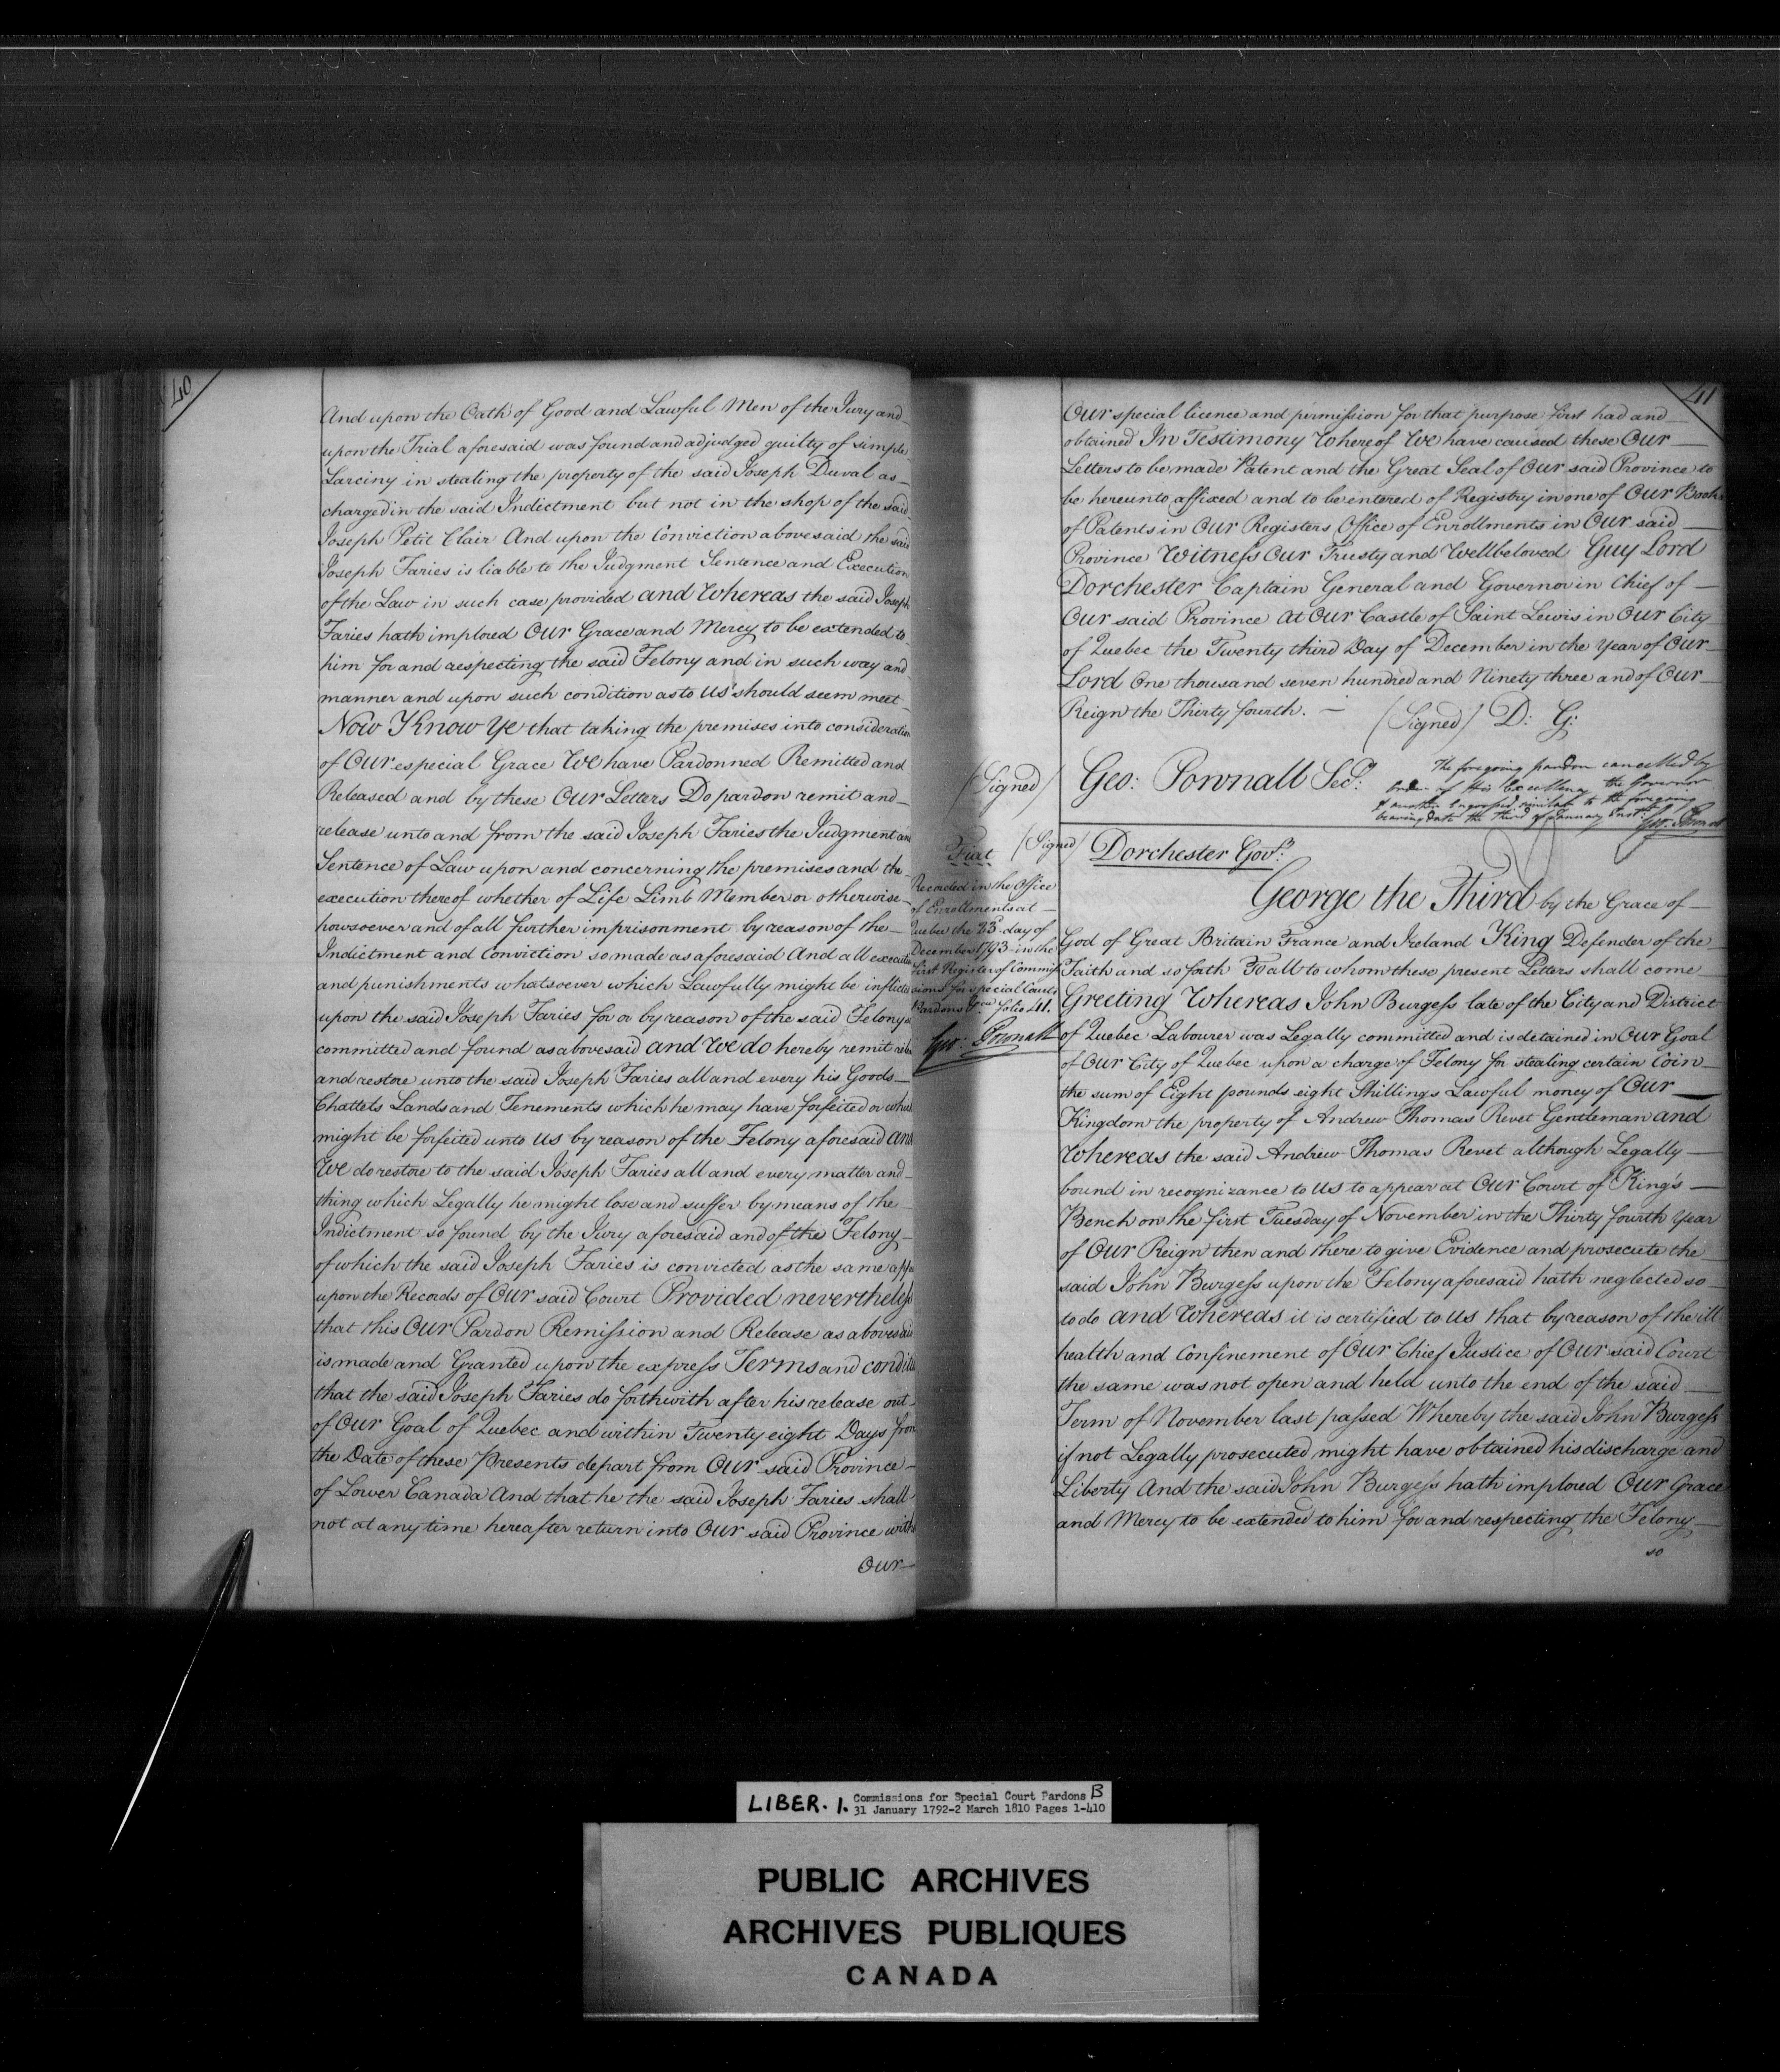 40
And upon the Oath of Good and Lawful Men of the Jury and
upon the Trial aforesaid was found and adjudged guilty of simple
Larciny in stealing the property of the said Joseph Duval as
charged in the said Indictment but not in the shop of the said
Joseph Petit Clair And upon the Conviction abovesaid the said
Joseph Faries is liable to the Judgment Sentence and Execution
of the Law in such case provided and Whereas the said Joseph
Faries hath implored Our Grace and Mercy to be extended to
him for and respecting the said Felony and in such way and
manner and upon such condition as to us should seem meet
Now Know Ye that taking the premises into consideration
of Our especial Grace We have Pardonned Remitted and
Released and by these Our Letters Do pardon remit and
release unto and from the said Joseph Faries the Judgment and
Sentence of Law upon and concerning the premises and the
execution thereof whether of Life Limb Member or otherwise
howsoever and of all further imprisonment by reason of the
Indictment and Conviction so made as aforesaid And all
and punishments whatsoever which Lawfully might be
upon the said Joseph Faries for or by reason of the said Felony
committed and found as abovesaid and We do hereby remit
and restore unto the said Joseph Faries all and every his Goods
Chattels Lands and Tenements which he may have forfeited or
might be forfeited unto us by reason of the Felony aforesaid and
We do restore to the said Joseph Faries all and every matter and
thing which Legally he might lose and suffer by means of the
Indictment so found by the Jury aforesaid and of the Felony
of which the said Joseph Faries is convicted as the same
upon the Records of Our said Court Provided nevertheless
that this Our Pardon Remission and Release as abovesaid
is made and Granted upon the express Terms and
that the said Joseph Faries do forthwith after his release out
of Our Goal of Quebec and within Twenty eight Days from
the Date of these Presents depart from Our said Province
of Lower Canada And that he the said Joseph Faries shall
not at any time hereafter return into Our said Province
Our
41
Our special licence and permission for that purpose first had and
obtained In Testimony Whereof We have caused these Our
Letters to be made Patent and the Great Seal of Our said Province to
be hereunto affixed and to be entered of Registry in one of Our Books
of Patents in Our Registers Office of Enrollments in Our said
Province Witness Our Trusty and Wellbeloved Guy Lord
Dorchester Captain General and Governor in Chief of
Our said Province at Our Castle of Saint Lewis in Our City
of Quebec the Twenty third Day of December in the Year of Our
Lord One thousand seven hundred and Ninety three and of Our
Reign the Thirty fourth. (Signed) D: G:
(Signed) Geo: Pownall Secy:
The foregoing pardon cancelled by
order of His Excellency the Governor
& another Engrossed similar to the foregoing
bearing date the third of January Inst.
Geo: Pownall
Fiat (Signed) Dorchester Govr:
Recorded in the Office
of Enrollments at
Quebec the 23d day of
December 1793 in the
first Register of Commis-
sions for special Courts
Pardons folio 41.
Geo: Pownall
George the Third by the Grace of
God of Great Britain France and Ireland King Defender of the
Faith and so forth To all to whom these present Letters shall come
Greeting Whereas John Burgess late of the City and District
of Quebec Labourer was Legally committed and is detained in Our Goal
of Our City of Quebec upon a charge of Felony for stealing certain Coin
the sum of Eight pounds eight Shillings Lawful money of Our
Kingdom the property of Andrew Thomas Revet Gentleman and
Whereas the said Andrew Thomas Revet although Legally
bound in recognizance to us to appear at Our Court of King's
Bench on the first Tuesday of November in the Thirty fourth Year
of Our Reign then and there to give Evidence and prosecute the
said John Burgess upon the Felony aforesaid hath neglected so
to do and Whereas it is certified to us that by reason of the ill
health and Confinement of Our Chief Justice of Our said Court
the same was not open and held unto the end of the said
Term of November last passed Whereby the said John Burgess
if not Legally prosecuted might have obtained his discharge and
Liberty And the said John Burgess hath implored Our Grace
and Mercy to be extended to him for and respecting the Felony
so
LIBER. 1. Commissions for Special Court Pardons B
31 January 1792-2 March 1810 Pages 1-410
PUBLIC ARCHIVES
ARCHIVES PUBLIQUES
CANADA